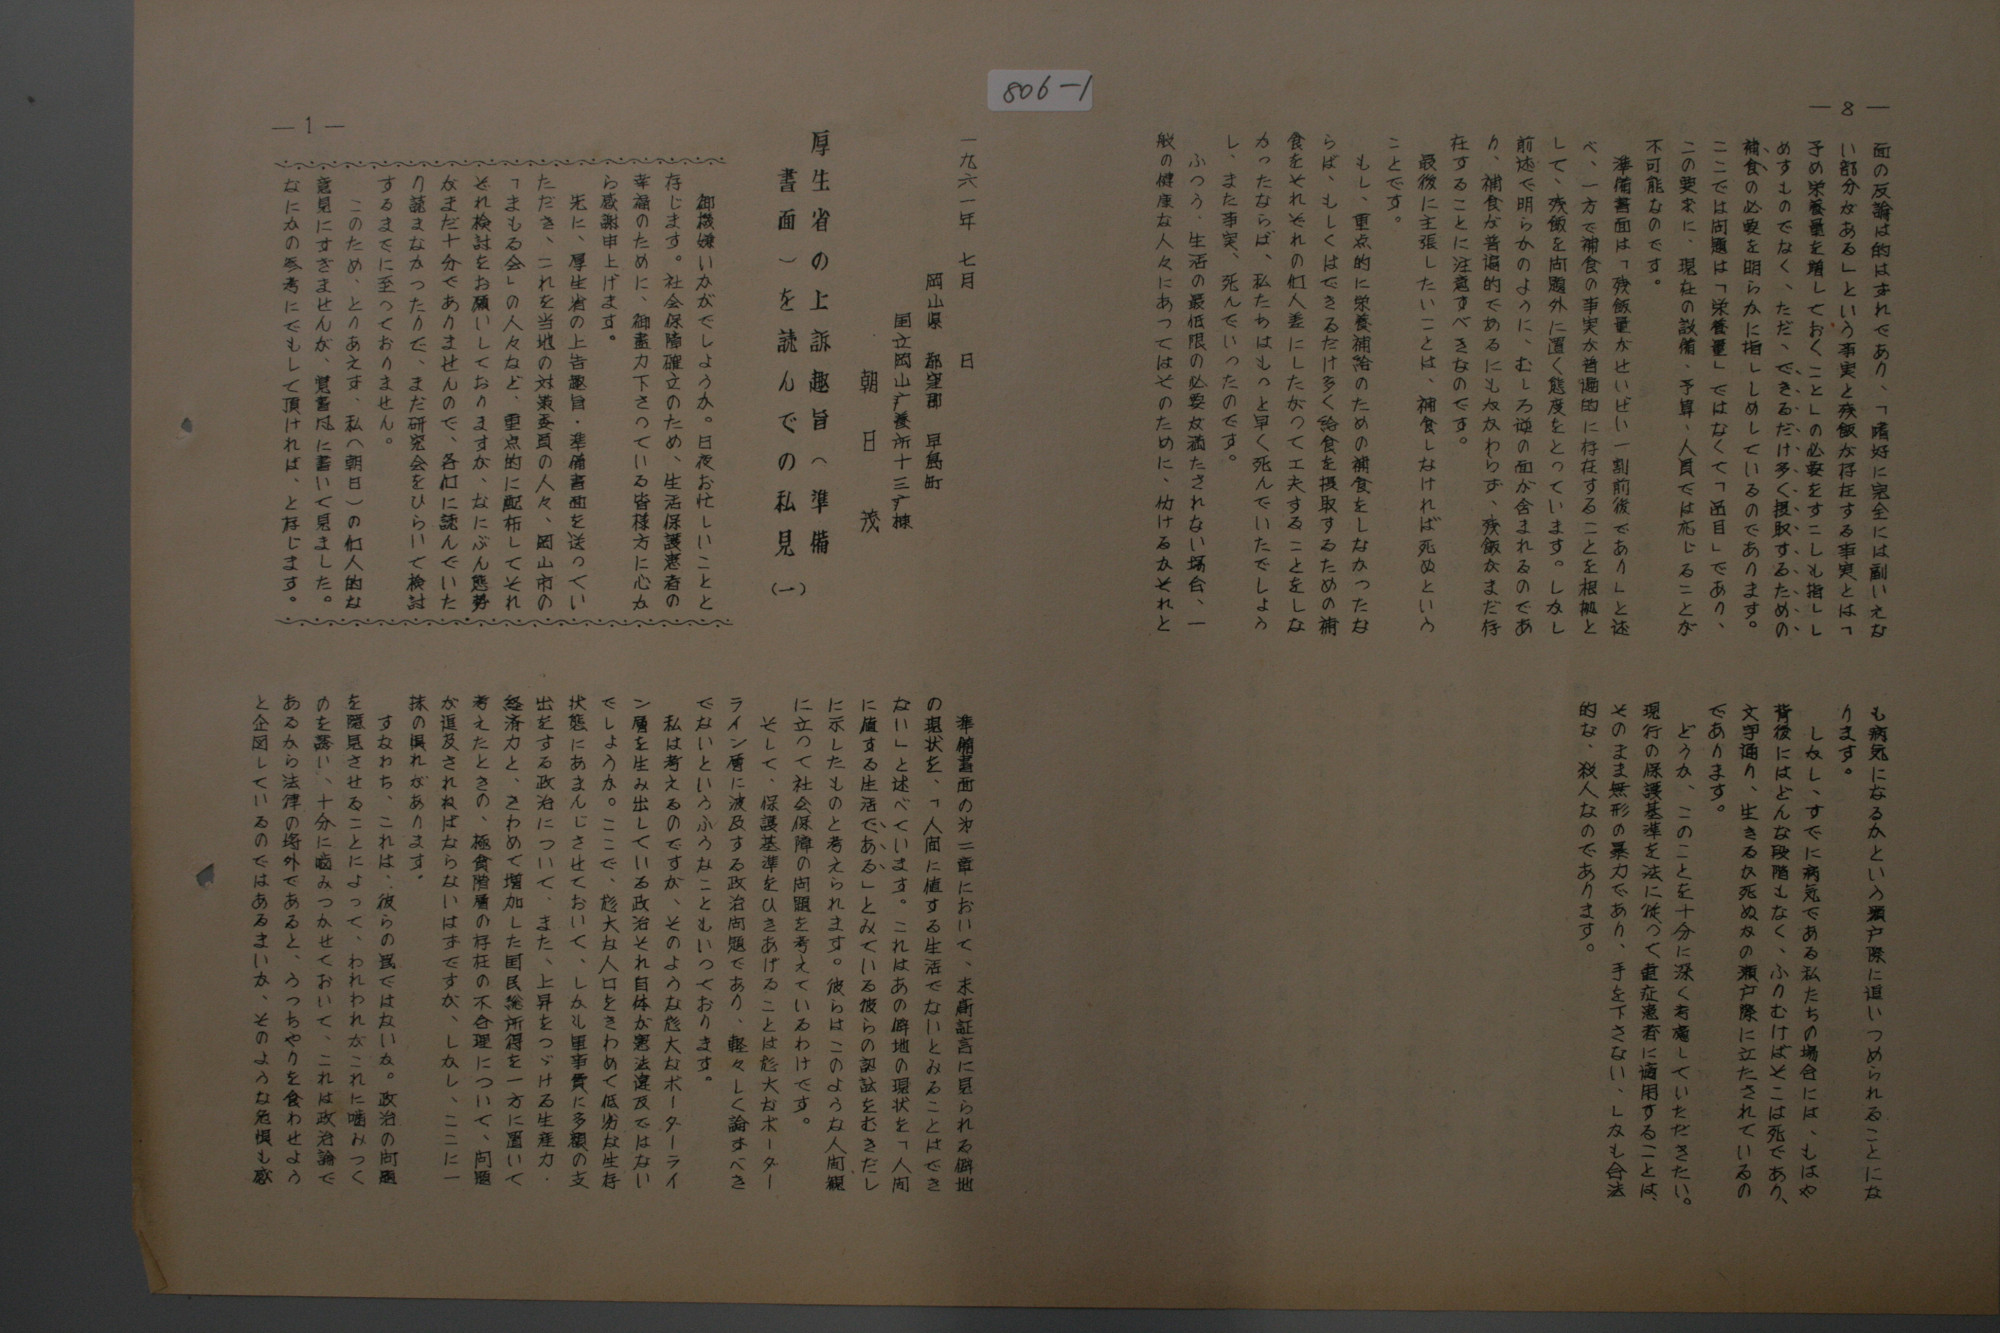 806-1
— 8 —
面の反論は的はずれであり、「嗜好に完全には副いえな
い部分がある」という事実と残飯が存在する事実とは「
予め栄養量を増しておくこと」の必要をすこしも指し
めすものでなく、ただ、できるだけ多く摂取するための
補食の必要を明らかに指ししめしているのであります。
ここでは問題は「栄養量」ではなくて「品目」であり、
この要求に、現在の設備、予算、人員では応じることが
不可能なのです。
準備書面は「残飯量がせいぜい一割前後であり」と述
べ、一方で補食の事実が普遍的に存在することを根拠と
して、残飯を問題外に置く態度をとっています。しかし
前述で明らかのように、むしろ逆の面が含まれるのであ
り、補食が普遍的であるにもかかわらず、残飯がまだ存
在することに注意すべきなのです。
最後に主張したいことは、補食しなければ死ぬという
ことです。
もし、重点的に栄養補給のための補食をしなかったな
らば、もしくはできるだけ多く給食を摂取するための補
食をそれぞれの個人差にしたがって工夫することをしな
かったならば、私たちはもっと早く死んでいたでしょう
し、また事実、死んでいったのです。
ふつう、生活の最低限の必要が満たされない場合、一
般の健康な人々にあってはそのために、倒けるかそれと
も病気になるかという瀬戸際に追いつめられることにな
ります。
しかし、すでに病気である私たちの場合には、もはや
背後にはどんな段階もなく、ふりむけばそこは死であり、
文字通り、生きるか死ぬかの瀬戸際に立たされているの
であります。
どうか、このことを十分に深く考慮していただきたい。
現行の保護基準を法に従って重症患者に適用することは、
そのまま無形の暴力であり、手を下さない、しかも合法
的な、殺人なのであります。
一九六一年 七月 日
岡山県 都窪郡 早島町
国立岡山療養所十三病棟
朝日 茂
厚生省の上訴趣旨(準備
書面)を読んでの私見(一)
— 1 —
御機嫌いかがでしょうか。日夜お忙しいことと
存じます。社会保障確立のため、生活保護患者の
幸福のために、御盡力下さっている皆様方に心か
ら感謝申上げます。
先に、厚生省の上告趣旨・準備書面を送ってい
ただき、これを当地の対策委員の人々、岡山市の
「まもる会」の人々など、重点的に配布してそれ
ぞれ検討をお願いしておりますが、なにぶん態勢
がまだ十分でありませんので、各個に読んでいた
り読まなかったりで、まだ研究会をひらいて検討
するまでに至っておりません。
このため、とりあえず、私(朝日)の個人的な
意見にすぎませんが、覚書風に書いて見ました。
なにかの参考にでもして頂ければ、と存じます。
準備書面の第二章において、末高証言に見られる僻地
の現状を、「人間に値する生活でないとみることはでき
ない」と述べています。これはあの僻地の現状を「人間
に値する生活である」とみている彼らの認識をむきだし
に示したものと考えられます。彼らはこのような人間観
に立って社会保障の問題を考えているわけです。
そして、保護基準をひきあげることは尨大なボーダー
ライン層に波及する政治問題であり、軽々しく論ずべき
でないというふうなこともいっております。
私は考えるのですが、そのような尨大なボーターライ
ン層を生み出している政治それ自体が憲法違反ではない
でしょうか。ここで、尨大な人口をきわめて低劣な生存
状態にあまんじさせておいて、しかも軍事費に多額の支
出をする政治について、また、上昇をつづける生産力・
経済力と、きわめて増加した国民総所得を一方に置いて
考えたときの、極貧階層の存在の不合理について、問題
が追及されねばならないはずですが、しかし、ここに一
抹の惧れがあります。
すなわち、これは、彼らの罠ではないか。政治の問題
を隠見させることによって、われわれがこれに噛みつく
のを誘い、十分に噛みつかせておいて、これは政治論で
あるから法律の埒外であると、うっちゃりを食わせよう
と企図しているのではあるまいか、そのような危惧も感